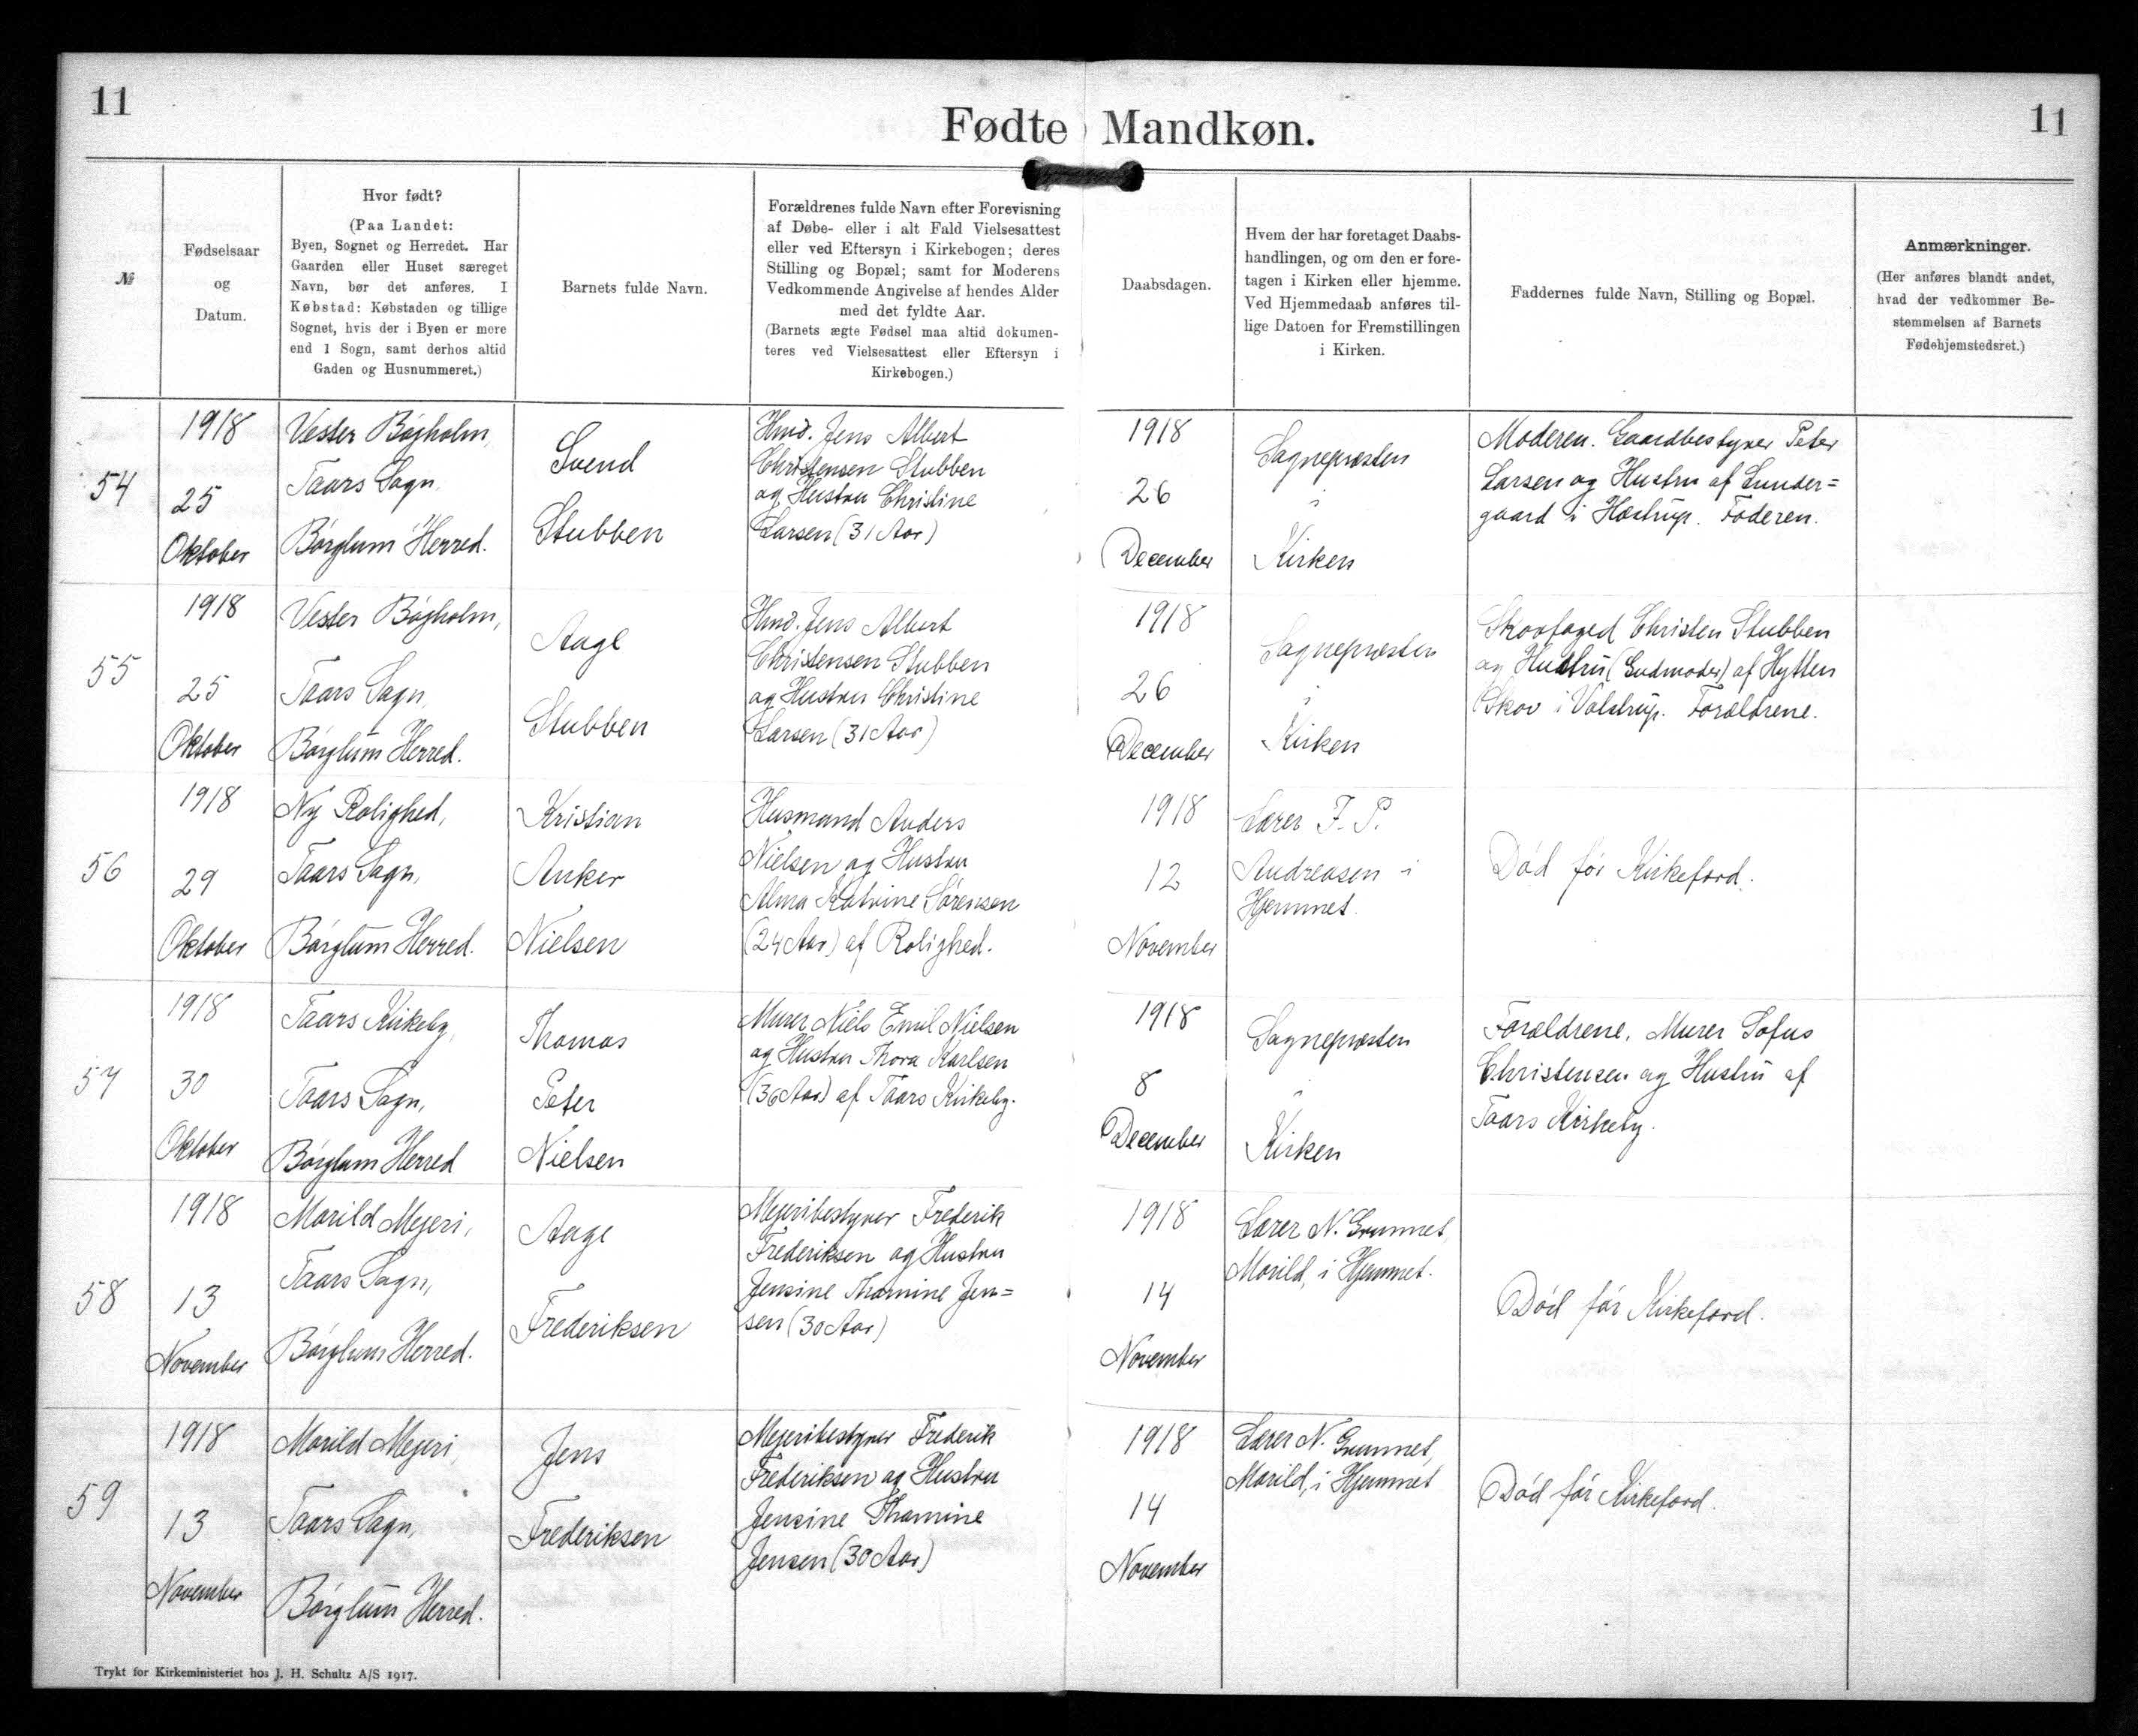 11
11
Fødte Mandkøn.
№
Fødselsaar
og
Datum.
Hvor født?
(Paa Landet:
Byen, Sognet og Herredet. Har
Gaarden eller Huset særeget
Navn, bør det anføres. I
Købstad: Købstaden og tillige
Sognet, hvis der i Byen er mere
end 1 Sogn, samt derhos altid
Gaden og Husnummeret.)
Barnets fulde Navn.
Forældrenes fulde Navn efter Forevisning
af Døbe- eller i alt Fald Vielsesattest
eller ved Eftersyn i Kirkebogen; deres
Stilling og Bopæl; samt for Moderens
Vedkommende Angivelse af hendes Alder
med det fyldte Aar.
(Barnets ægte Fødsel maa altid dokumen-
teres ved Vielsesattest eller Eftersyn i
Kirkebogen.)
Daabsdagen.
Hvem der har foretaget Daabs-
handlingen, og om den er fore-
tagen i Kirken eller hjemme.
Ved Hjemmedaab anføres til-
lige Datoen for Fremstillingen
i Kirken.
Faddernes fulde Navn, Stilling og Bopæl.
Anmærkninger.
(Her anføres blandt andet,
hvad der vedkommer Be-
stemmelsen af Barnets
Fødehjemstedsret.)
54
1918
25
Oktober
Vester Bøjholm,
Taars Sogn,
Børglum Herred.
Svend
Stubben
Hmd. Jens Albert
Christensen Stubben
og Hustru Christine
Larsen (31 Aar)
1918
26
December
Sognepræsten
i
Kirken
Moderen. Gaardbestyrer Peter
Larsen og Hustru af Lunder=
gaard i Hæstrup. Faderen.
55
1918
25
Oktober
Vester Bøjholm,
Taars Sogn,
Børglum Herred.
Aage
Stubben
Hmd. Jens Albert
Christensen Stubben
og Hustru Christine
Larsen (31 Aar)
1918
26
December
Sognepræsten
i
Kirken
Skovfoged Christen Stubben
og Hustru (Gudmoder) af Hytten
Skov i Volstrup. Forældrene.
56
1918
29
Oktober
Ny Rolighed,
Taars Sogn,
Børglum Herred.
Kristian
Anker
Nielsen
Husmand Anders
Nielsen og Hustru
Alma Katrine Sørensen
(24 Aar) af Rolighed.
1918
12
November
Lærer J. P.
Andreasen i
Hjemmet.
Død før Kirkefærd.
57
1918
30
Oktober
Taars Kirkeby,
Taars Sogn,
Børglum Herred
Thomas
Peter
Nielsen
Murer Niels Emil Nielsen
og Hustru Thora Karlsen
(36 Aar) af Taars Kirkeby.
1918
8
December
Sognepræsten
i
Kirken
Forældrene. Murer Sofus
Christensen og Hustru af
Taars Kirkeby.
58
1918
13
November
Morild Mejeri,
Taars Sogn,
Børglum Herred.
Aage
Frederiksen
Mejeribestyrer Frederik
Frederiksen og Hustru
Jensine Thomine Jen=
sen (30 Aar)
1918
14
November
Lærer N. Grummet,
Morild, i Hjemmet.
Død før Kirkefærd.
59
1918
13
November
Morild Mejeri,
Taars Sogn,
Børglum Herred.
Jens
Frederiksen
Mejeribestyrer Frederik
Frederiksen og Hustru
Jensine Thomine
Jensen (30 Aar)
1918
14
November
Lærer N. Grummet,
Morild, i Hjemmet
Død før Kirkefærd.
Trykt for Kirkeministeriet hos J. H. Schultz A/S 1917.